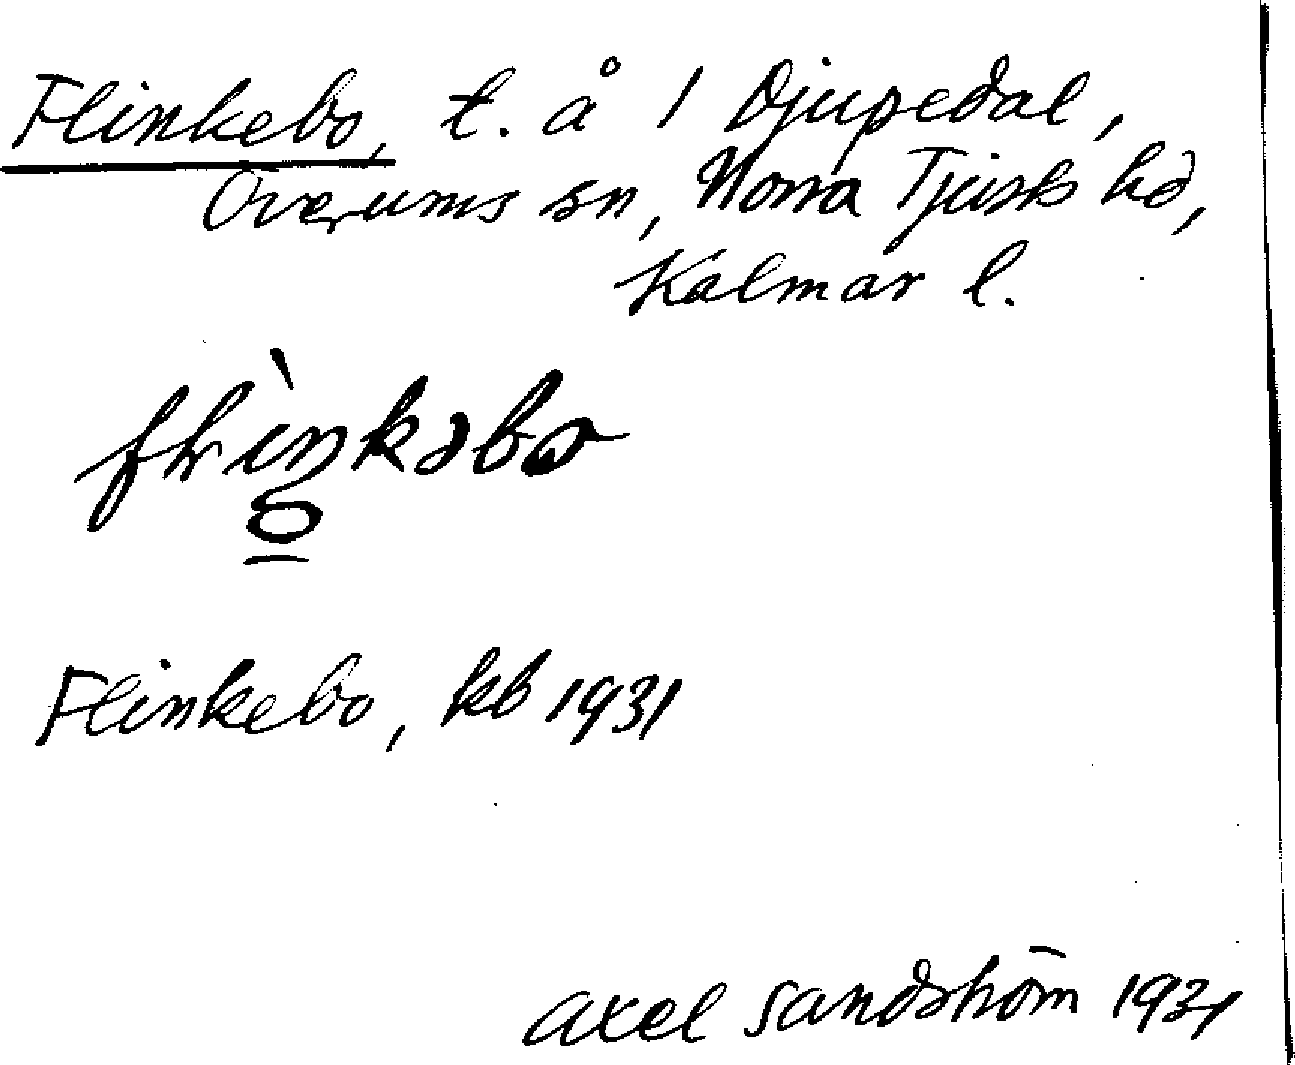 Flinkebo, t. å 1 Djupedal,
Överums sn, Norra Tjusts hd,
Kalmar l.
Flinkebo, kb 1931
Axel Sandström 1931